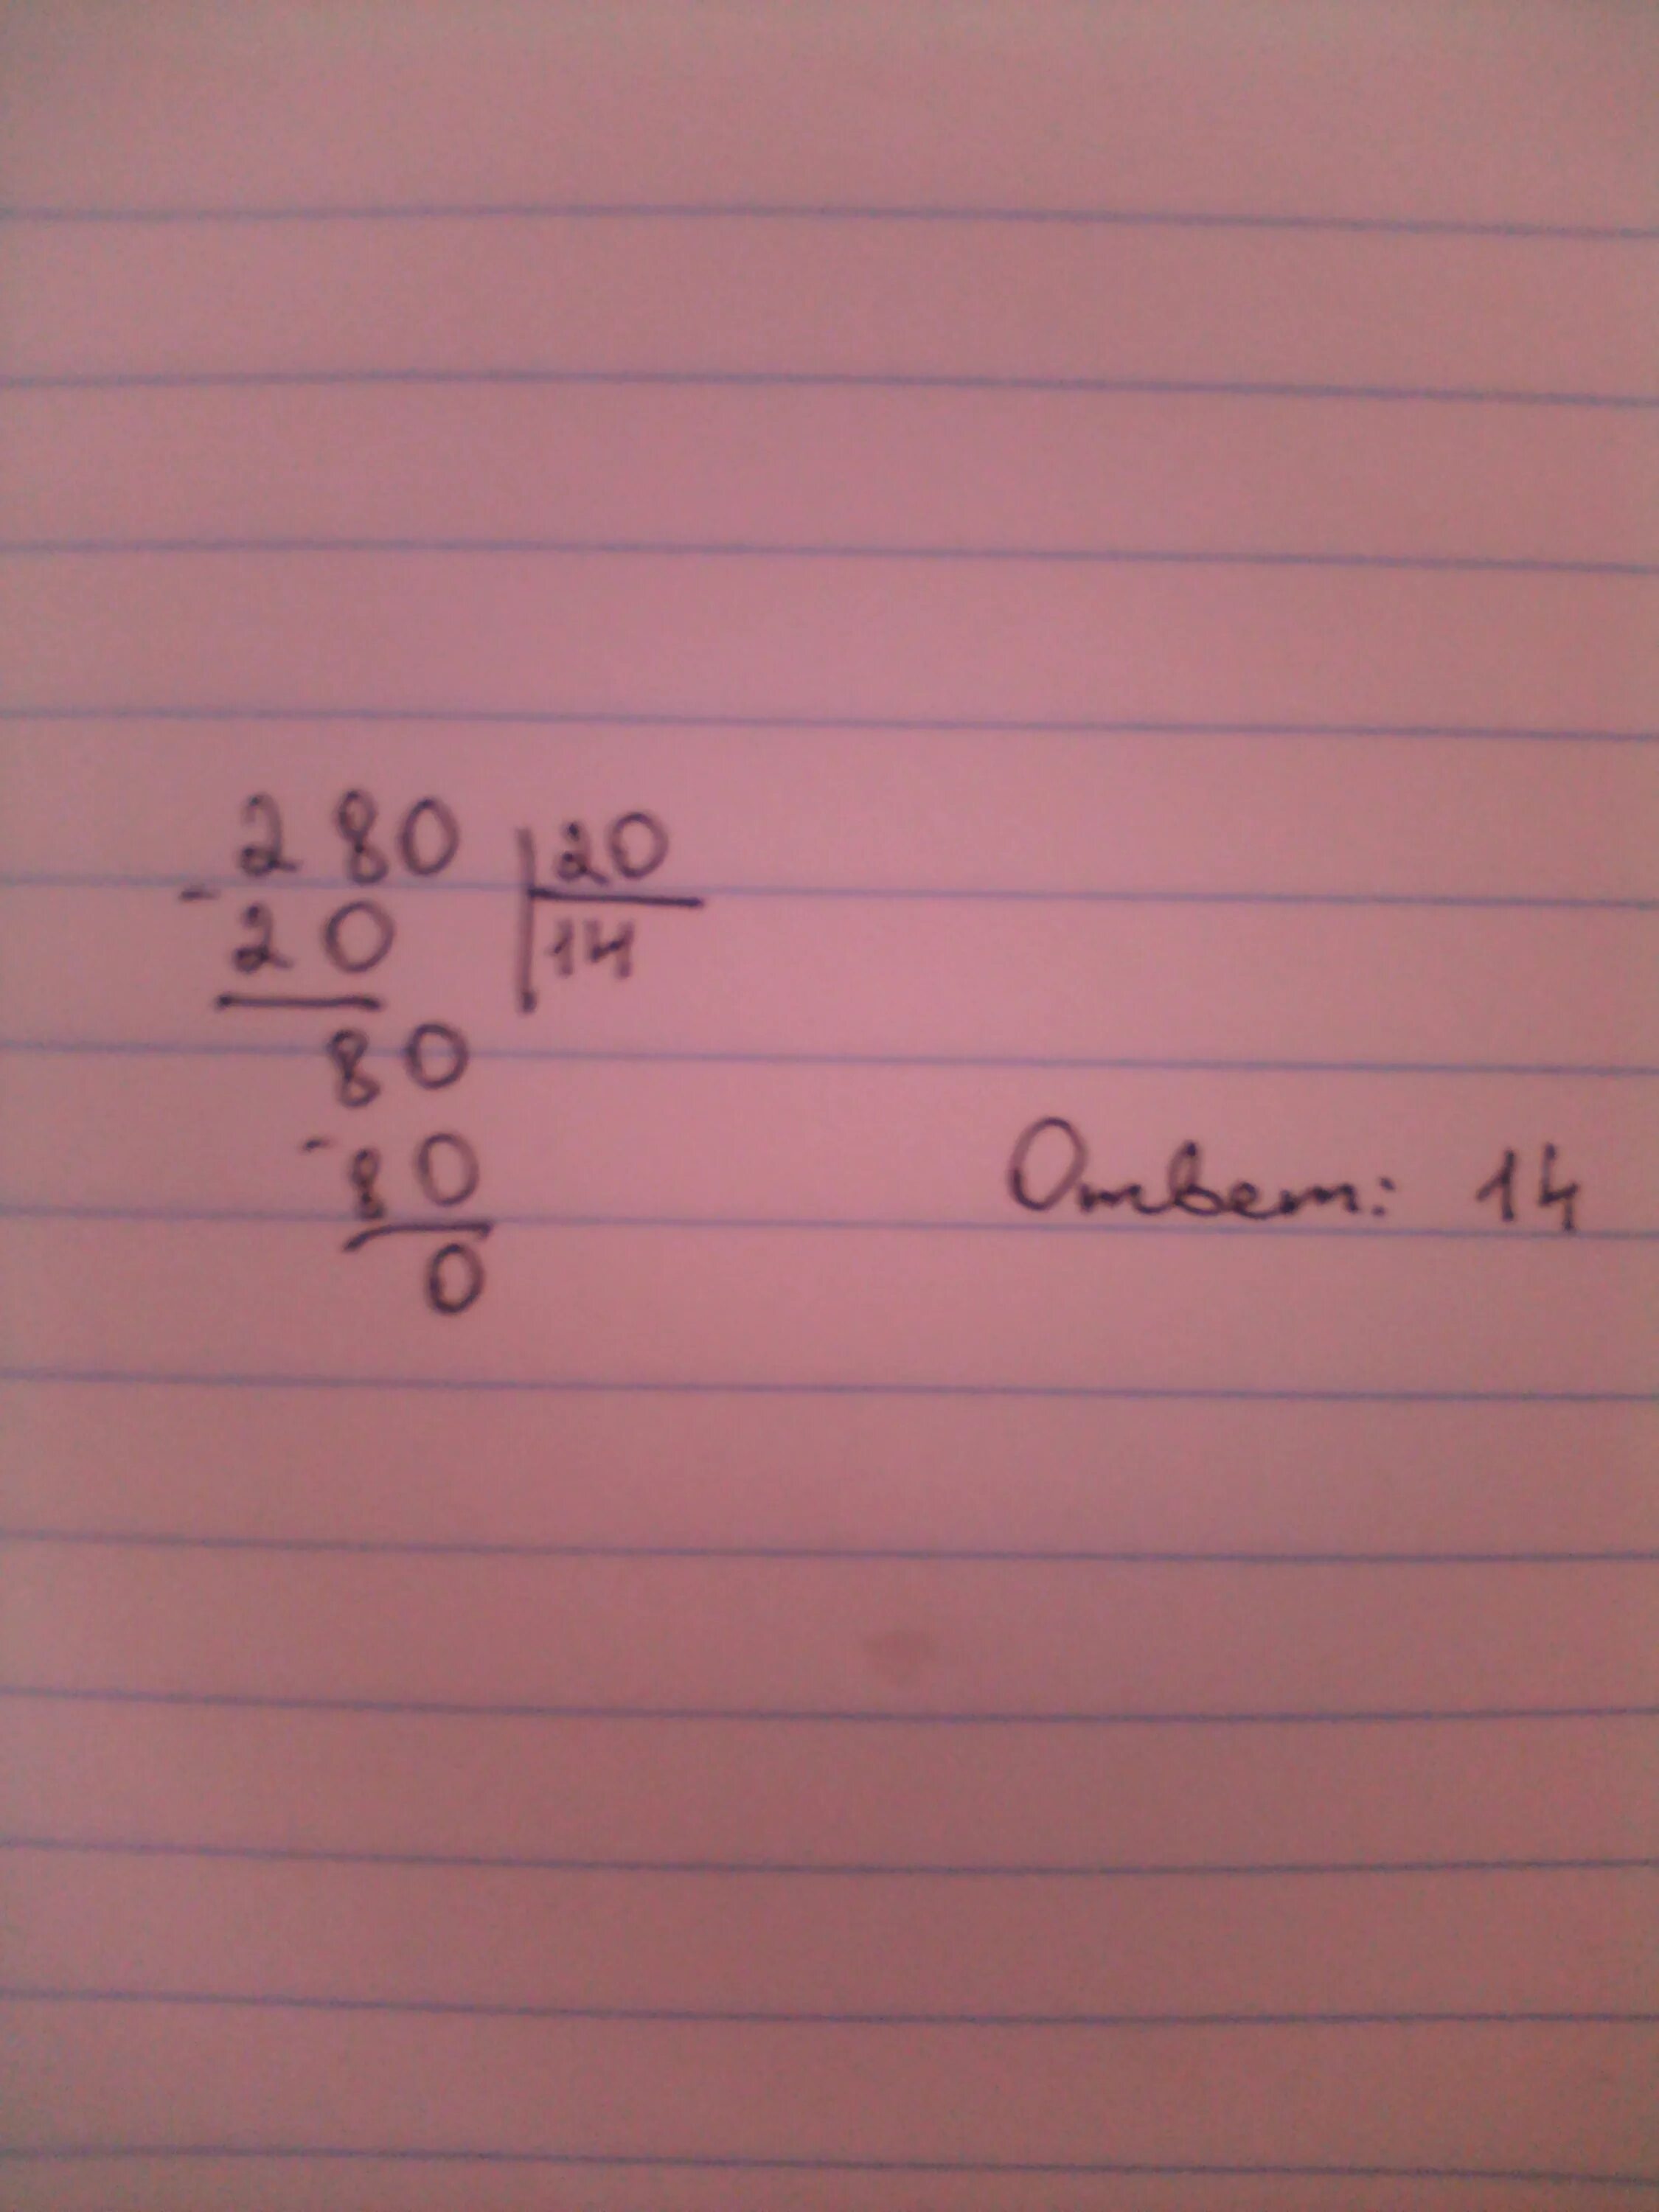 280 | 20
- 20 | 14
80
- 80
0
Ответ: 14